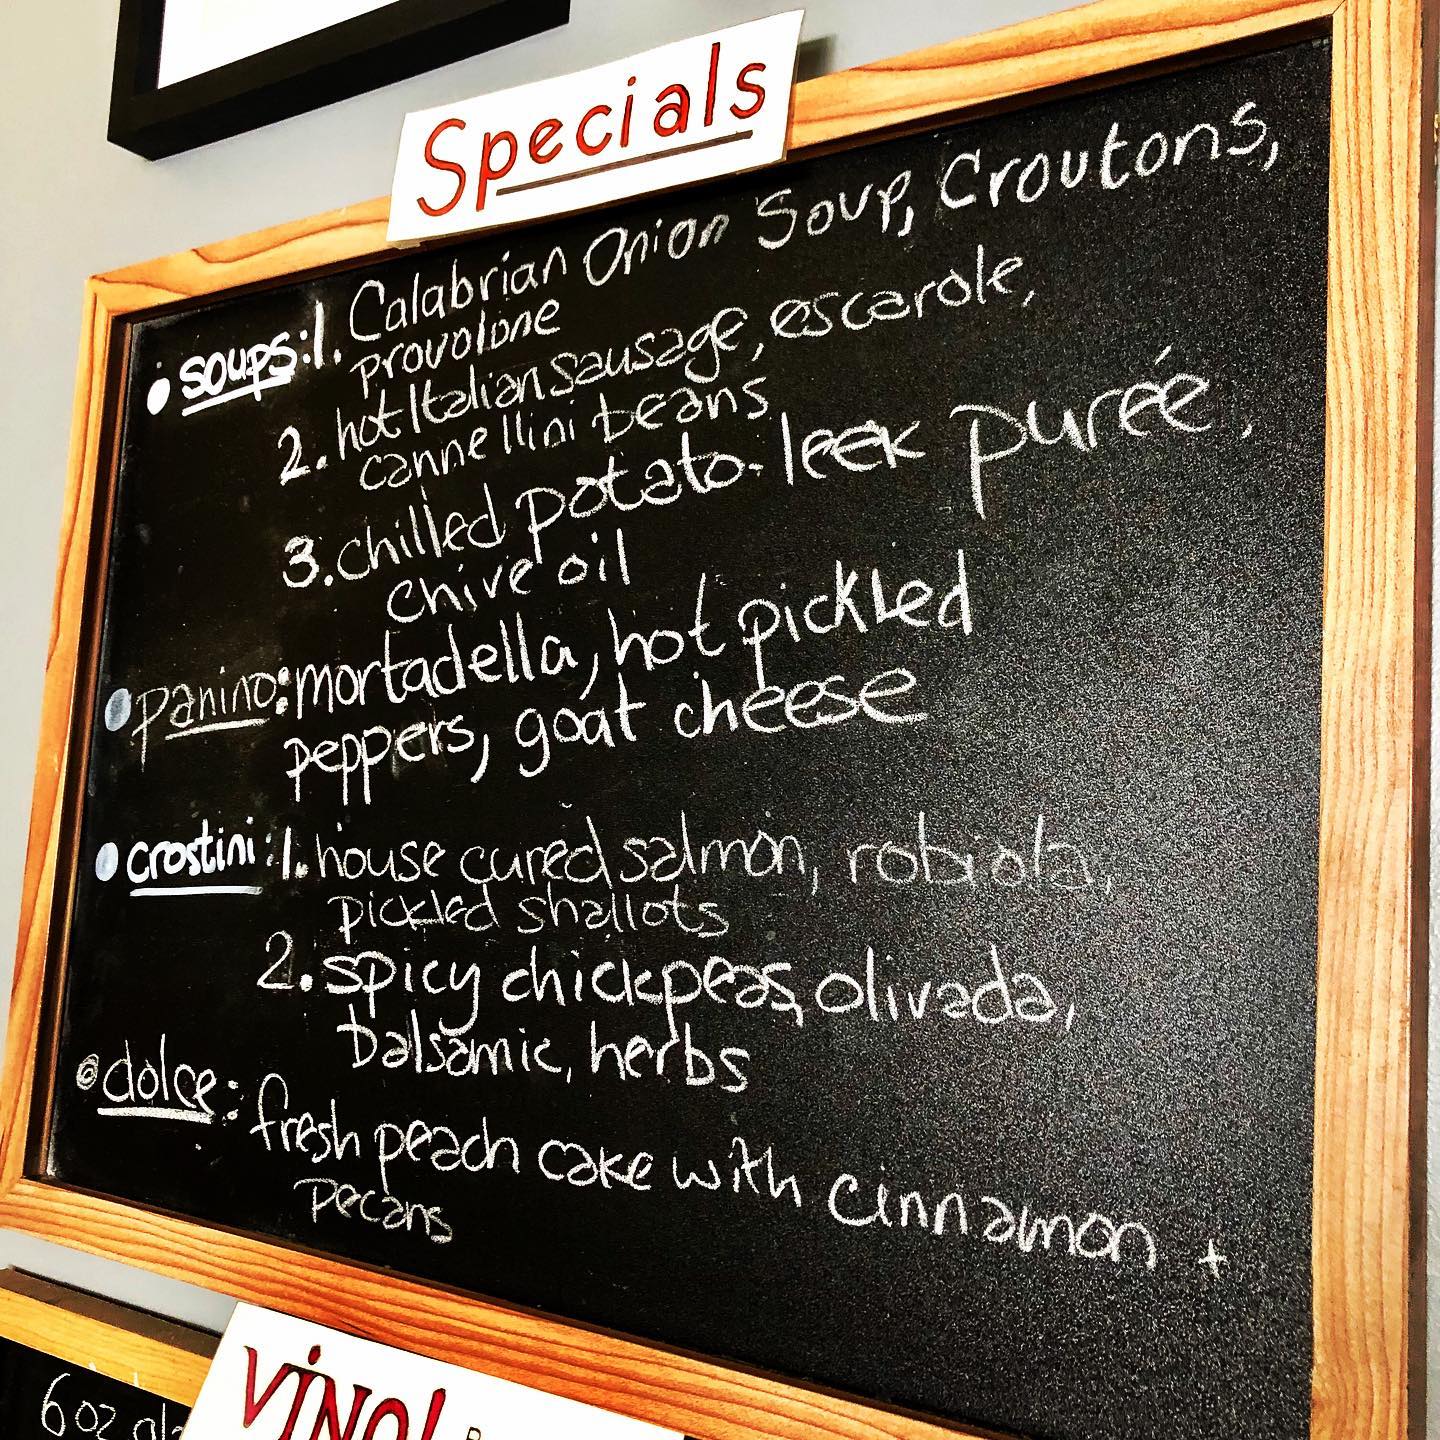 Specials
• soups: 1. Calabrian Onion Soup, Croutons,
provolone
2. hot Italian sausage, escarole,
cannellini beans
3. chilled potato-leek purée,
chive oil
• panino: mortadella, hot pickled
peppers, goat cheese
• crostini: 1. house cured salmon, robiola,
pickled shallots
2. spicy chickpeas, olivada,
balsamic, herbs
• dolce: fresh peach cake with cinnamon +
pecans
VINO!
6 oz